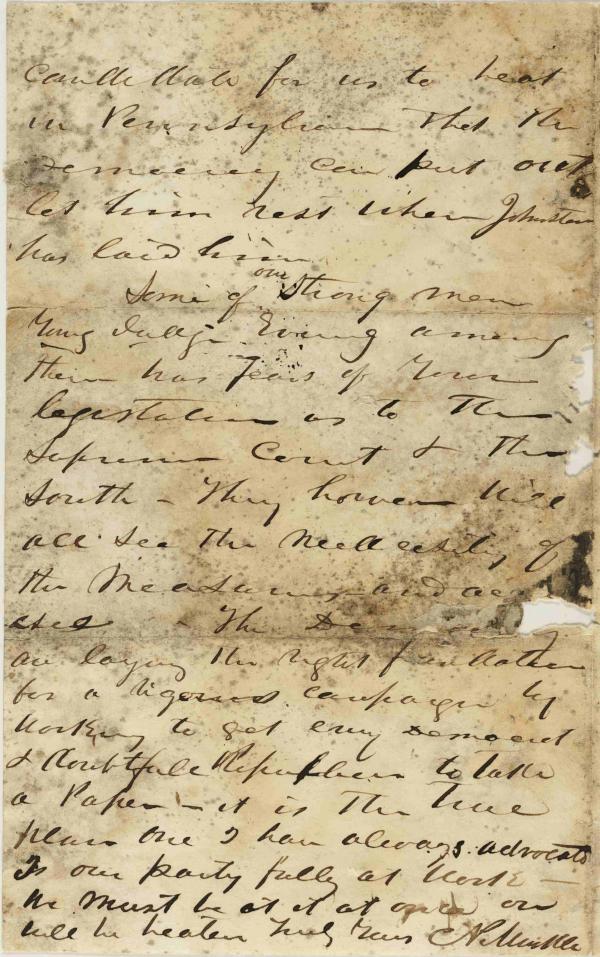 candidate for us to beat
in Pennsylvania that the
Democracy can put out
let him rest when Johnston
has laid him
our
Some of Strong men
Young Judge Ewing among
them has fears of Your
legistation as to the
Supreme Court & the
South - They however Will
all see the Neccessity of
the Measures and
- The
are laying the right foundation
for a vigorous campaign by
Working to get every Democrat
& doubtfull Republican to take
a Paper - it is the true
plan One I have always advocate
Is our party fully at Work -
We must be at it at once or
will be beaten Truly Yours